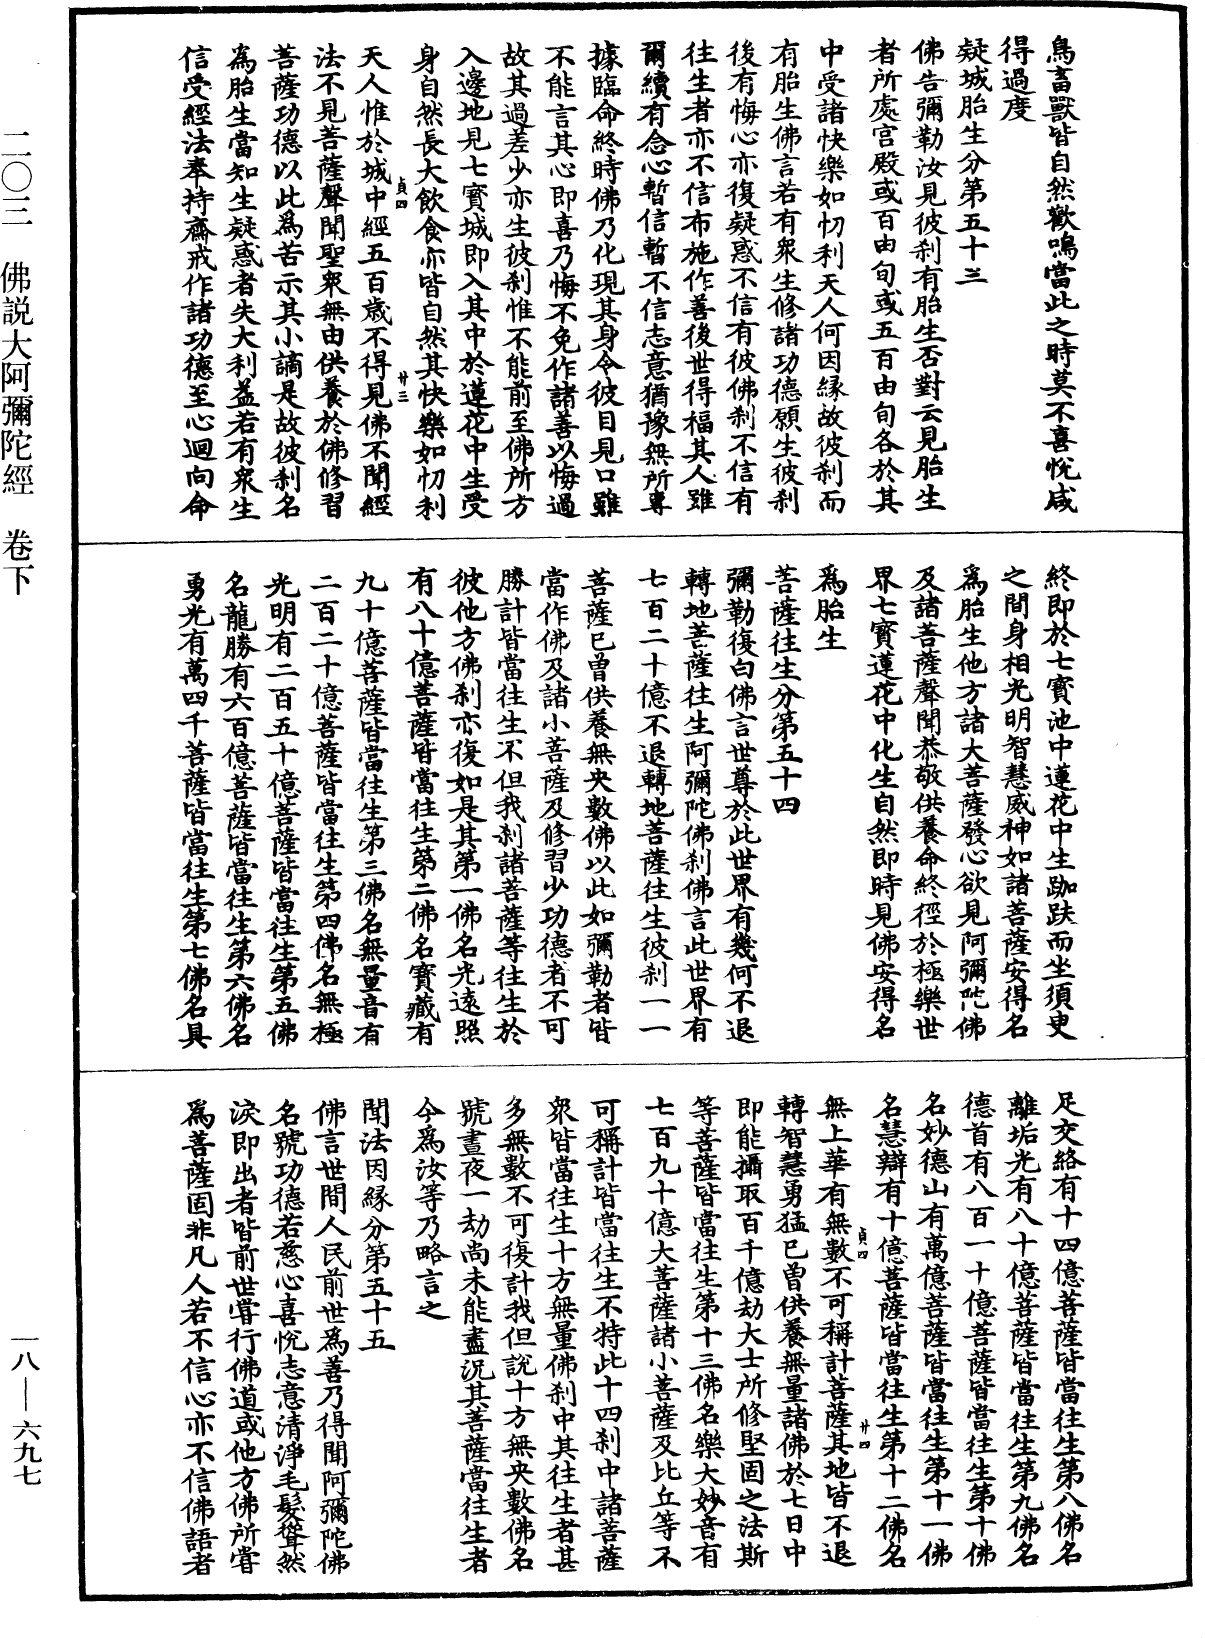 鳥畜獸皆自然歡鳴當此之時莫不喜悅咸
得過度
疑城胎生分第五十三
佛告彌勒汝見彼刹有胎生否對云見胎生
者所處宮殿或百由旬或五百由旬各於其
中受諸快樂如忉利天人何因緣故彼刹而
有胎生佛言若有衆生修諸功德願生彼刹
後有悔心亦復疑惑不信有彼佛刹不信有
往生者亦不信布施作善後世得福其人雖
爾續有念心暫信暫不信志意猶豫無所專
據臨命終時佛乃化現其身令彼目見口雖
不能言其心即喜乃悔不免作諸善以悔過
故其過差少亦生彼刹惟不能前至佛所方
入邊地見七寶城即入其中於蓮花中生受
身自然長大飲食亦皆自然其快樂如忉利
貞四 廿三
天人惟於城中經五百歲不得見佛不聞經
法不見菩薩聲聞聖衆無由供養於佛修習
菩薩功德以此爲苦示其小謫是故彼刹名
為胎生當知生疑惑者失大利益若有衆生
信受經法奉持齋戒作諸功德至心迴向命
終即於七寶池中蓮花中生跏趺而坐須臾
之間身相光明智慧威神如諸菩薩安得名
爲胎生他方諸大菩薩發心欲見阿彌陀佛
及諸菩薩聲聞恭敬供養命終徑於極樂世
界七寶蓮花中化生自然即時見佛安得名
爲胎生
菩薩往生分第五十四
彌勒復白佛言世尊於此世界有幾何不退
轉地菩薩往生阿彌陀佛刹佛言此世界有
七百二十億不退轉地菩薩往生彼刹一一
菩薩已曾供養無央數佛以此如彌勒者皆
當作佛及諸小菩薩及修習少功德者不可
勝計皆當往生不但我刹諸菩薩等往生於
彼他方佛刹亦復如是其第一佛名光遠照
有八十億菩薩皆當往生第二佛名寶藏有
九十億菩薩皆當往生第三佛名無量音有
二百二十億菩薩皆當往生第四佛名無極
光明有二百五十億菩薩皆當往生第五佛
名龍勝有六百億菩薩皆當往生第六佛名
勇光有萬四千菩薩皆當往生第七佛名具
足交絡有十四億菩薩皆當往生第八佛名
離垢光有八十億菩薩皆當往生第九佛名
德首有八百一十億菩薩皆當往生第十佛
名妙德山有萬億菩薩皆當往生第十一佛
名慧辯有十億菩薩皆當往生第十二佛名
無上華有無數不可稱計菩薩其地皆不退
貞四 廿四
轉智慧勇猛已曾供養無量諸佛於七日中
即能攝取百千億劫大士所修堅固之法斯
等菩薩皆當往生第十三佛名樂大妙音有
七百九十億大菩薩諸小菩薩及比丘等不
可稱計皆當往生不特此十四刹中諸菩薩
衆皆當往生十方無量佛刹中其往生者甚
多無數不可復計我但說十方無央數佛名
號晝夜一劫尚未能盡況其菩薩當往生者
今爲汝等乃略言之
聞法因緣分第五十五
佛言世間人民前世爲善乃得聞阿彌陀佛
名號功德若慈心喜悅志意清淨毛髮聳然
淚即出者皆前世嘗行佛道或他方佛所嘗
爲菩薩固非凡人若不信心亦不信佛語者
二〇三 佛説大阿彌陀經 卷下
一八—六九七